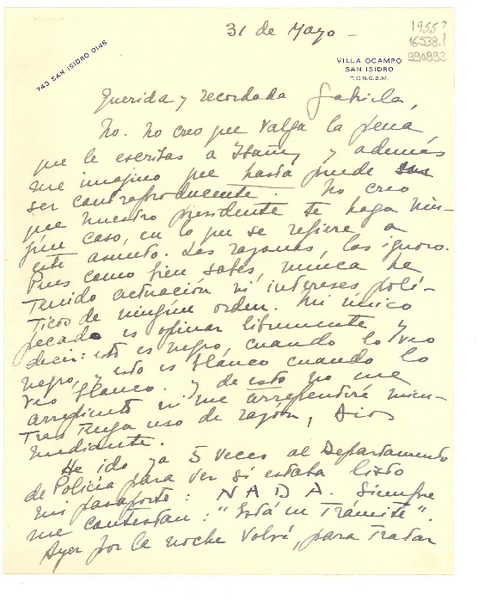 1955?
16538.1
990893
31 de Mayo -
743 SAN ISIDRO 0146
VILLA OCAMPO
SAN ISIDRO
F.C.N.G.B.M.
Querida y recordada Gabriela,
No. No creo que valga la pena
que le escribas a Ibáñez y además
me imagino que hasta puede
ser contraproducente. No creo
que nuestro presidente te haga nin-
gún caso, en lo que se refiere a
este asunto. Las razones, las ignoro.
Pues como bien sabes, nunca he
tenido actuación ni intereses polí-
ticos de ningún orden. Mi único
pecado es opinar libremente y
decir: esto es negro, cuando lo veo
negro, y esto es blanco cuando lo
veo blanco. Y de esto no me
arrepiento ni me arrepentiré mien-
tras tenga uso de razón, Dios
mediante.
He ido ya 5 veces al Departamento
de Policía para ver si estaba listo
mi pasaporte: NADA. Siempre
me contestan: "Está en Trámite".
Ayer por la noche volví, para tratar